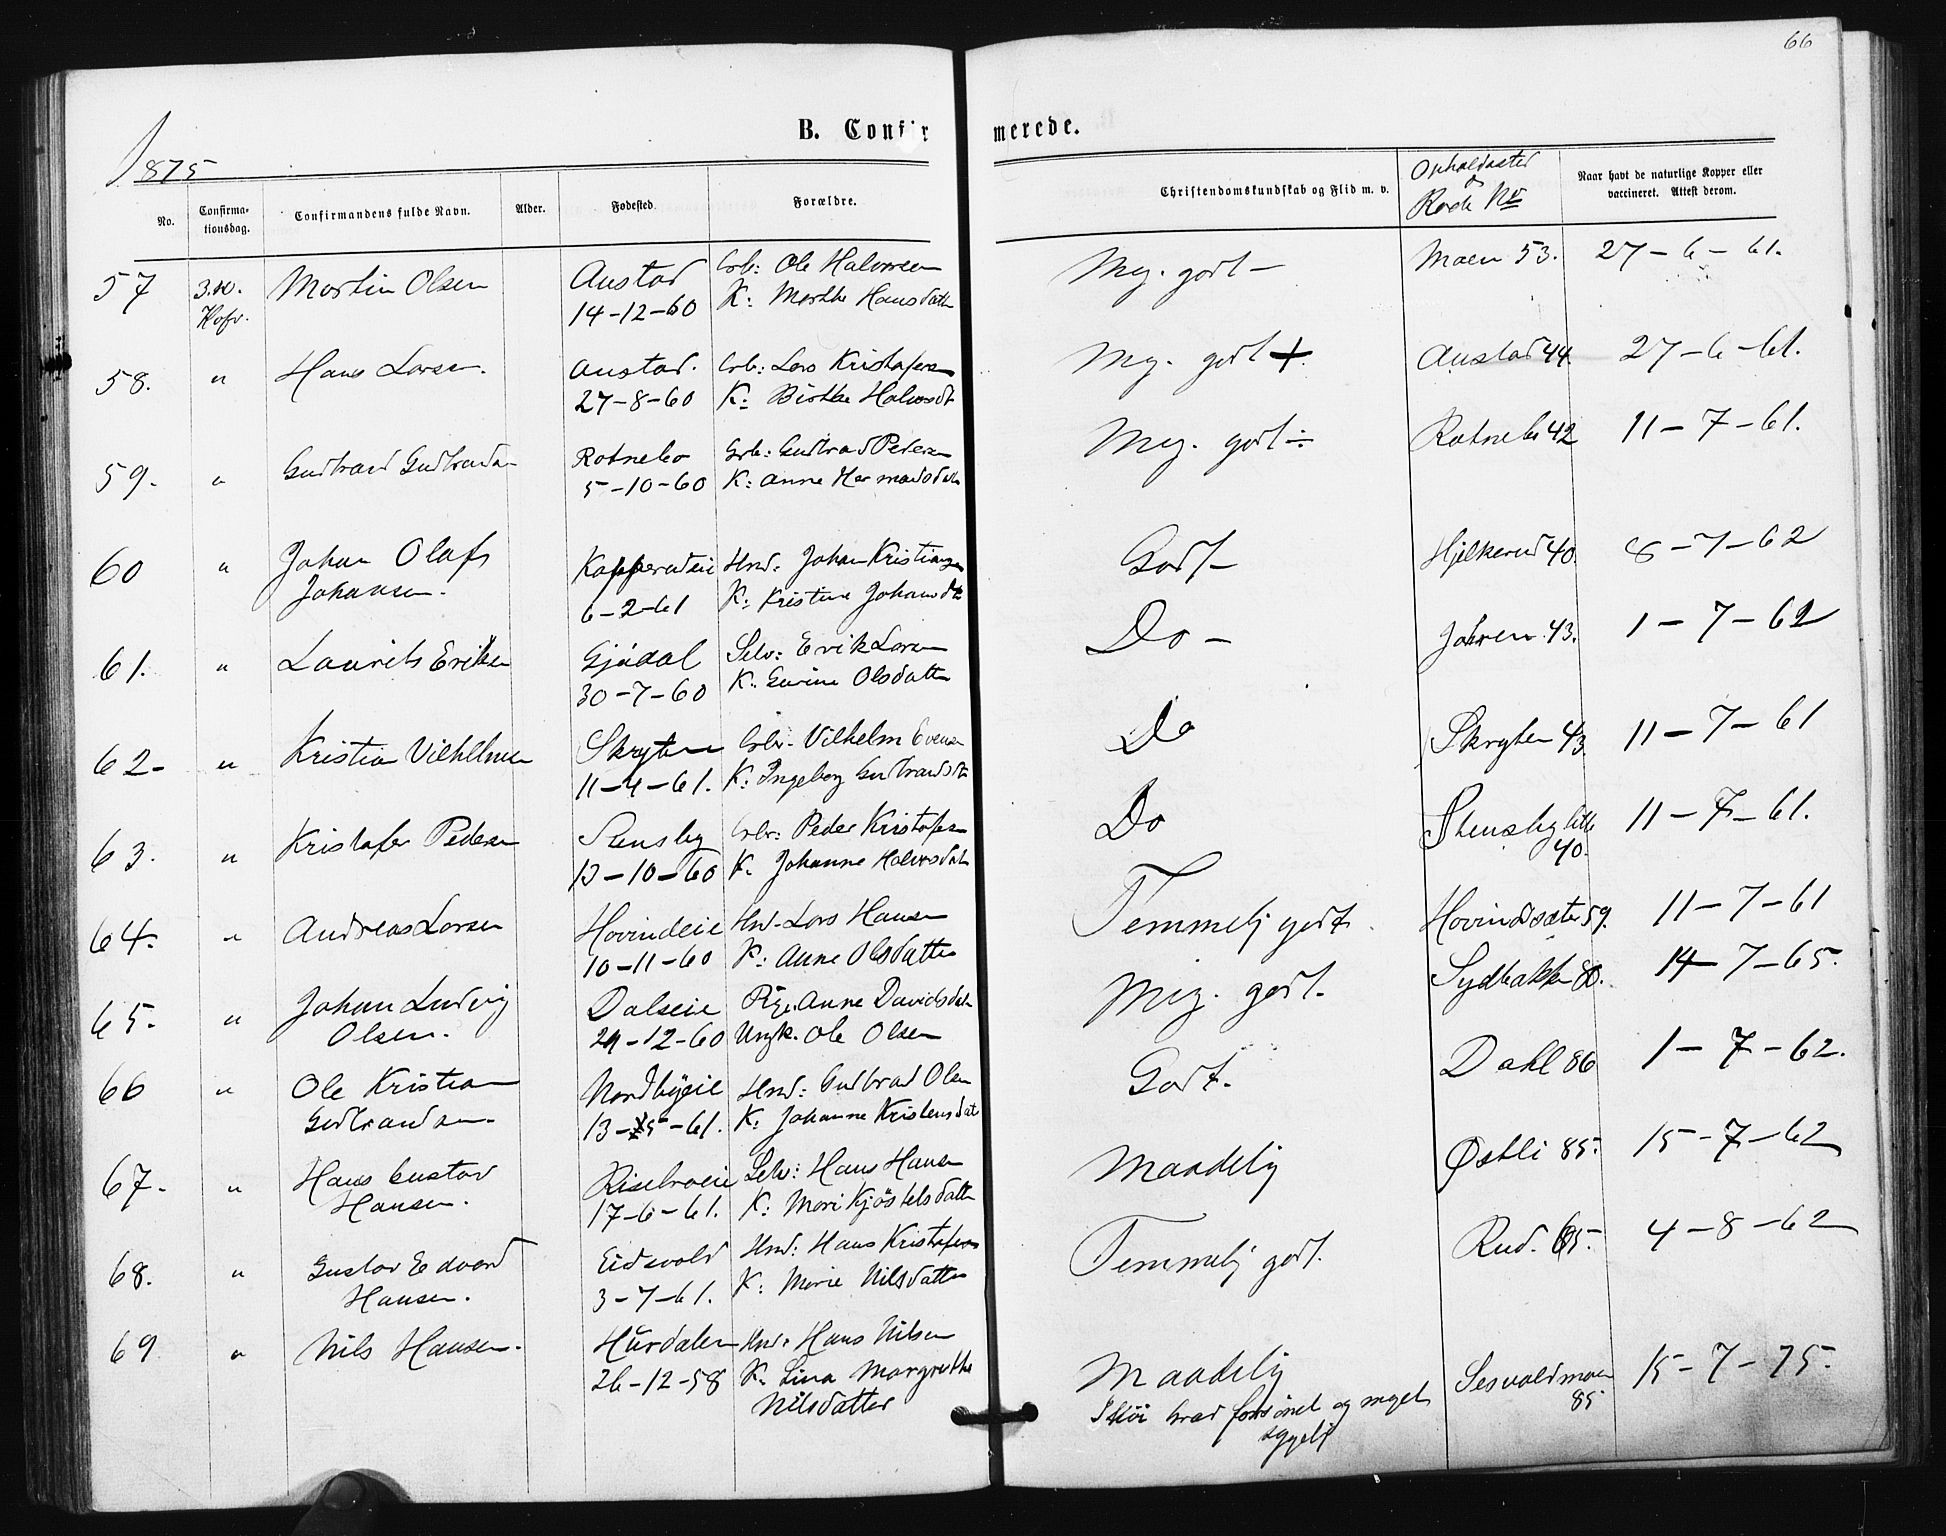 66
B. Confirmerede.
1875
No.
Confirmationsdag.
Confirmandens fulde Navn.
Alder.
Fødested.
Forældre.
Christendomskundskab og Flid m. v.
Opholdssted og Rode No
Naar havt de naturlige Kopper eller vaccineret. Attest derom.
57 Martin Olsen Austad Ole Halvorsen Meg. godt – Moen 53. 27–6–61.
14–12–60 K: Marthe Hansdatter
58. " Hans Larsen. Austad. Lars Kristofersen Meg. godt + Austad 44 27–6–61.
27–8–60 K: Birthe Halvorsdt
59. " Gudbrand Gudbrandsen Rotnebo Gudbrand Pedersen Meg. godt ÷ Rotnebo 42 11–7–61.
5–10–60 K: Anne Hermandsdatter
60 " Johan Olaf Hmd: Johan Kristiansen Godt – Hjelkerud 40. 8–7–62
Johansen. 6–2–61 K: Kristine Johansdt
61. " Laurits Eriksen Gjødal Selv: Erik Larsen Do – 43. 1–7–62
30–7–60 K: Gurine Olsdatter
62– " Kristian Vilhelmsen Skryten Vilhelm Evensen Do Skryten 43 11–7–61
11–4–61. K: Ingeborg Gudbrandsdt
63. " Kristofer Pedersen Stensby Peder Kristofersen Do Stensby litle 40. 11–7–61.
13–10–60 K. Johanne Halvorsdat
64. " Andreas Larsen Hovindeie Hmd. Lars Hansen Temmelig godt. Hovindsæter 59. 11–7–61
10–11–60 K: Anne Olsdatter
65. " Johan Ludvig Dalseie Pige. Anne Davidsdat Meg. godt. Sydbakken 80. 14–7–65.
Olsen. 29–12–60 Ungk. Ole Olsen
66 " Ole Kristian Nordbyeie Hmd: Gudbrand Olsen Godt. Dahl 86 1–7–62.
Gudbrandsen. 13–5–61. K. Johanne Kristensdat
67. " Hans Gustav Risebroeie Selv: Hans Hansen Maadelig Østli 85. 15–7–62
Hansen. 17–6–61. K: Mari Kjøstelsdatter
68. " Gustav Edvard Eidsvold Hmd: Hans Kristofersen Temmelig godt. Rud. 4–8–62
Hansen. 3–7–61. K: Marie Nilsdatter
69 " Nils Hansen. Hurdalen Hmd: Hans Nilsen Maadelig Sesvoldmoen 85 15–7–75.
26–12–58 K. Lina Margrethe
Nilsdatter og meget
sygelig